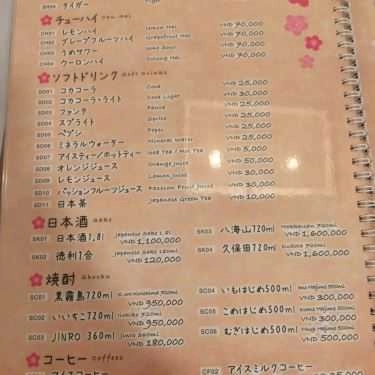 タイガー Tiger
チューハイ
CH01 レモンハイ Lemon Hai VND 70,000
CH02 グレープフルーツハイ Grapefruit Hai VND 70,000
CH03 うめサワー Ume Sour VND 70,000
CH04 ウーロンハイ Oolong Hai VND 70,000
ソフトドリンク Soft Drinks
SD01 コカコーラ Coca VND 25,000
SD02 コカコーラ・ライト Coca Light VND 25,000
SD03 ファンタ Fanta VND 25,000
SD04 スプライト Sprite VND 25,000
SD05 ペプシ Pepsi VND 25,000
SD06 ミネラルウォーター Mineral Water
SD07 アイスティー/ホットティー Iced Tea / Hot Tea
SD08 オレンジジュース Orange Juice
SD09 レモンジュース Lemon Juice
SD10 パッションフルーツジュース Passion Fruit Juice
SD11 日本茶 Japanese Green Tea VND 10,000
日本酒 Sake
SK01 日本酒1,8l Japanese Sake 1,8l VND 1,100,000
SK02 徳利1合 VND 120,000
SK03 八海山720ml VND 1,600,000
SK04 久保田720ml VND 1,600,000
焼酎 Shochu
SC01 黒霧島720ml VND 950,000
SC02 いいちこ720ml VND 950,000
SC03 JINRO 360ml VND 180,000
SC04 いもはじめ500ml VND 300,000
SC05 こめはじめ500ml VND 300,000
SC06 むぎはじめ500ml VND 500,000
コーヒー Coffees
アイスコーヒー
CF02 アイスミルクコーヒー
VND 35,000